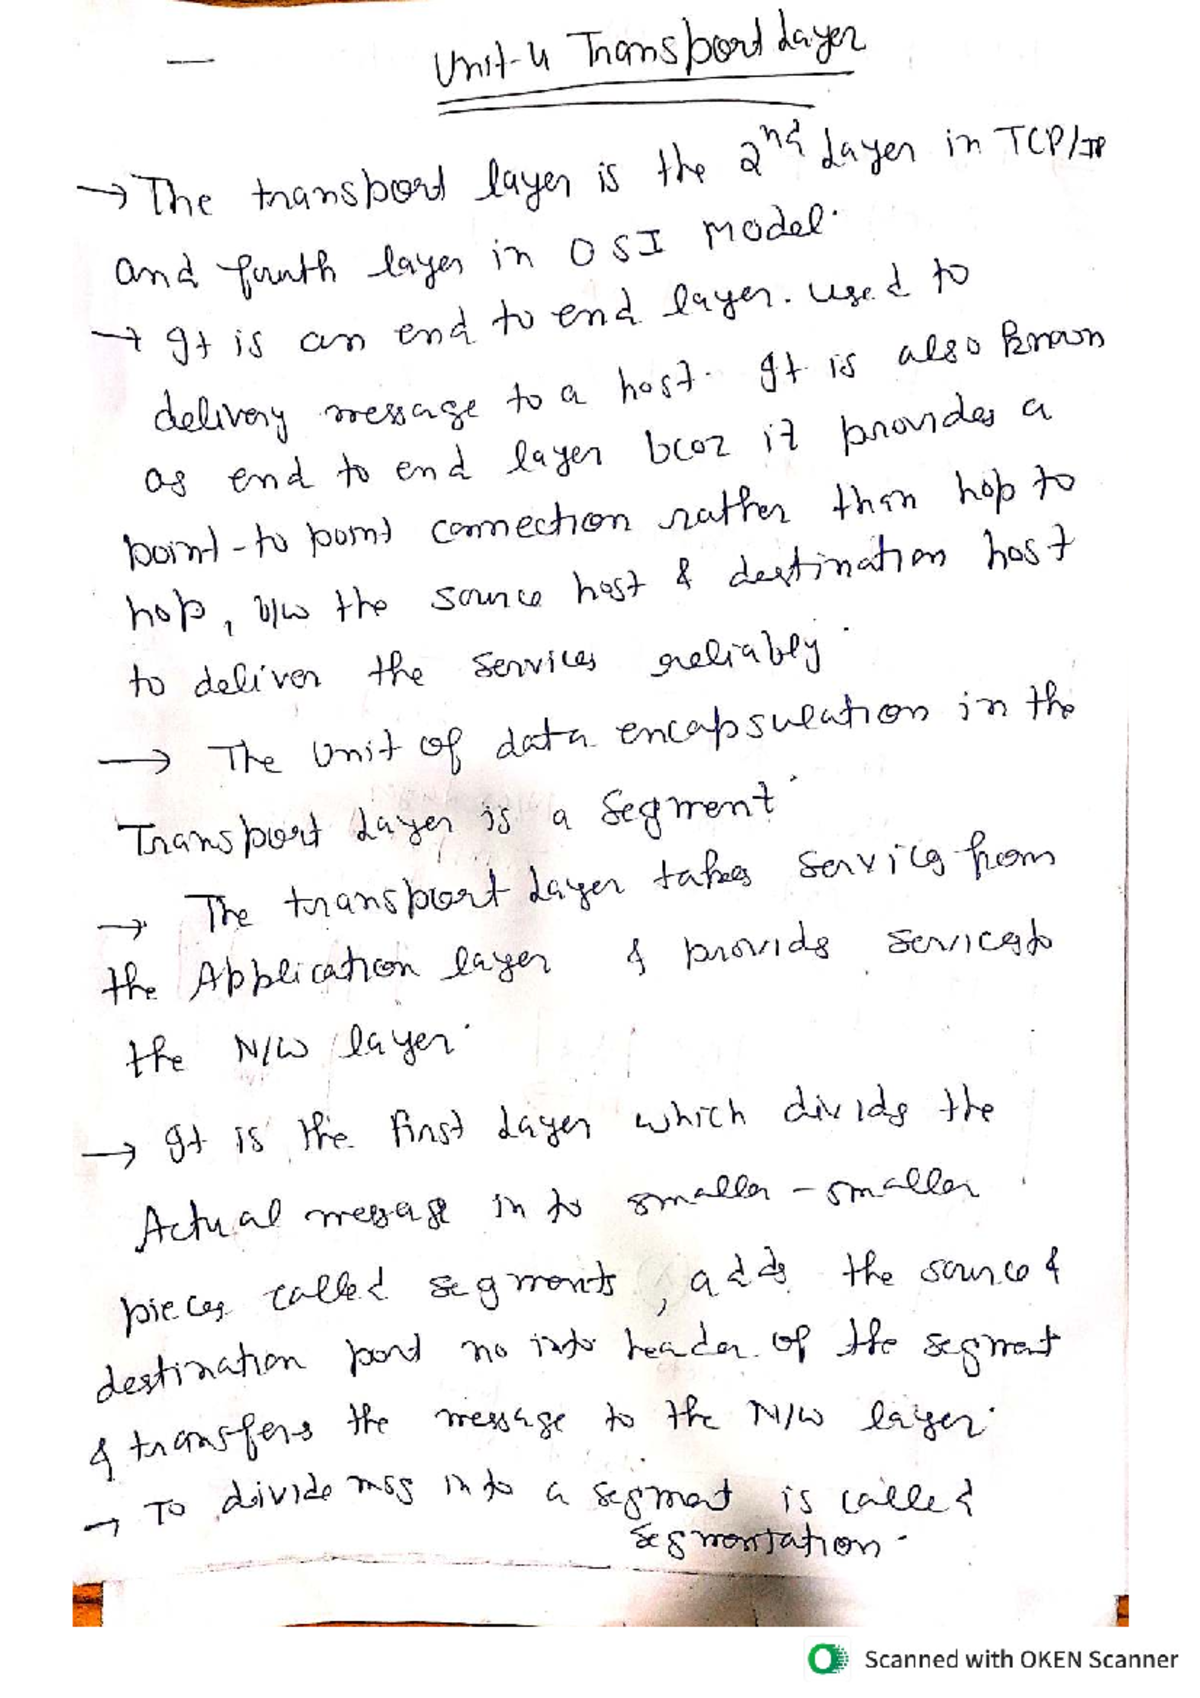 Unit-4 Transport Layer
→ The transport layer is the 2nd Layer in TCP/IP
and fourth layer in OSI Model.
→ It is an end to end layer. used to
delivery message to a host. It is also known
as end to end layer bcoz it provides a
point-to point connection rather than hop to
hop, b/w the source host & destination host
to deliver the services reliably.
→ The Unit of data encapsulation in the
Transport Layer is a Segment.
→ The transport Layer takes services from
the Application layer & provide services to
the N/W layer.
→ It is the first Layer which divide the
Actual message in to smaller - smaller
pieces called segments, adds the source &
destination port no into header of the segment
& transfers the message to the N/W layer.
→ To divide msg into a segment is called
segmentation.
Scanned with OKEN Scanner